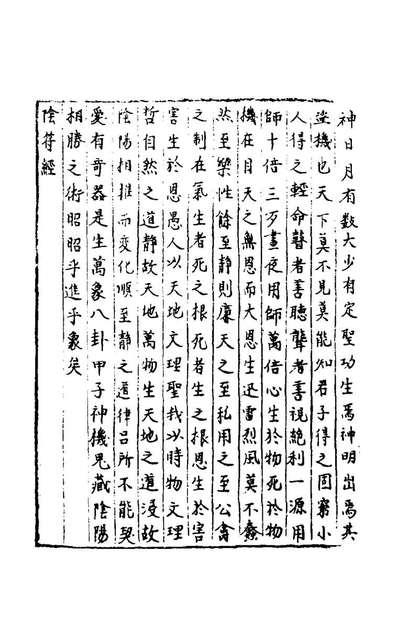 神日月有数大少有定聖功生焉神明出焉其
盗機也天下莫不見莫能知君子得之固窮小
人得之輕命瞽者善聽聾者善視絶利一源用
師十倍三歹晝夜用師萬倍心生於物死於物
機在目天之無恩而大恩生迅雷烈風莫不蠢
然至樂性餘至静則廉天之至私用之至公禽
之制在氣生者死之根死者生之根恩生於害
害生於恩愚人以天地文理聖我以時物文理
哲自然之道静故天地萬物生天地之道浸故
陰陽相推而変化順至静之道律吕所不能契
爰有奇器是生萬象八卦甲子神機鬼藏陰陽
相勝之術昭昭乎進乎象矣
陰符經